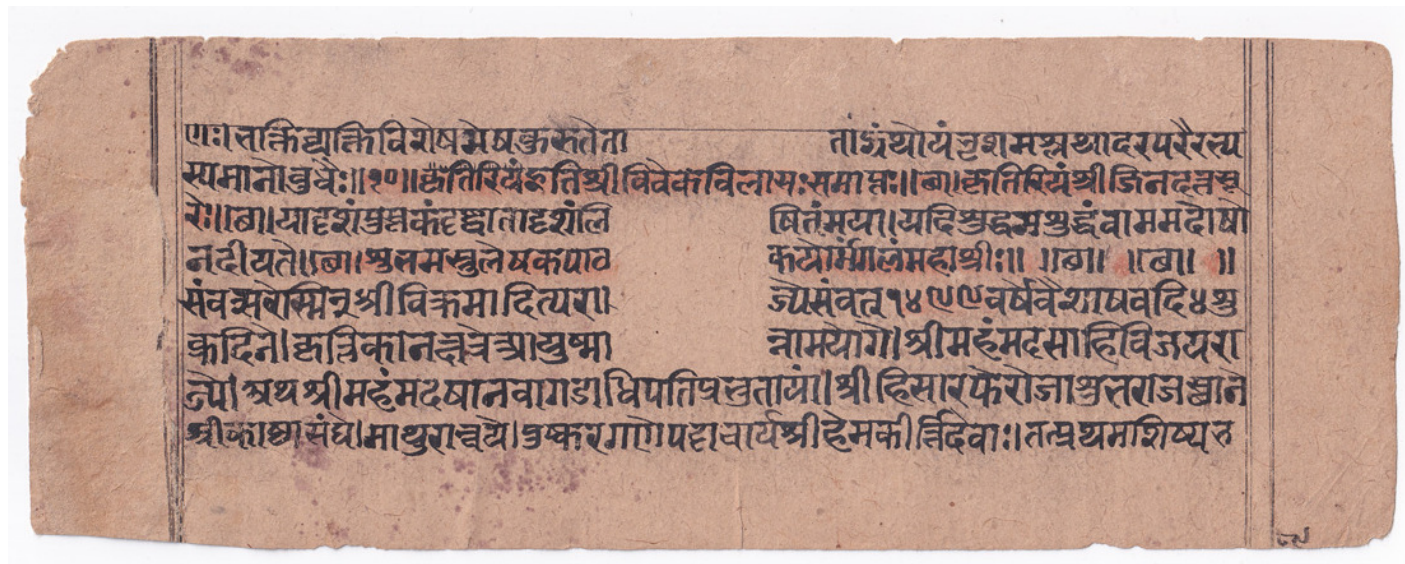 णः। तात्क्तिव्यक्तिविशेषमेषकुरुतेता तांग्रंथोयंनृशमश्नथादरपरैरत्य
स्यमानोबुधैः॥१०॥ कृतिरियं इतिश्रीविवेकविलासःसमाप्तः॥छ॥कृतिरियंश्रीजिनदत्तसू
रेः॥छ॥यादृशंपुस्तकंदृष्ट्वातादृशंलि षितंमया।यदिशुद्धमशुद्धंवाममदोषो
नदीयते॥छ॥शुभमस्तुलेषकपाठ कयोर्मंगलंमहाश्रीः॥ ॥छ॥ ॥छ॥ ॥
संवत्सरेस्मिन्श्रीविक्रमादित्यरा ज्येसंवत्१४९९वर्षेवैशाषवदि४शु
क्रदिने।कृत्तिकानक्षत्रेआयुष्मा न्नामयोगे।श्रीमहंमदसाहिविजयरा
ज्ये।अथश्रीमहंमदषानवागडाधिपतिप्रभुतायां।श्रीहिसारफेरोजाशुभराजस्थाने
श्रीकाष्ठासंघे।माथुरान्वये।पुष्करगणेपट्टाचार्यश्रीहेमकीर्त्तिदेवाः।तत्प्रथमशिष्य